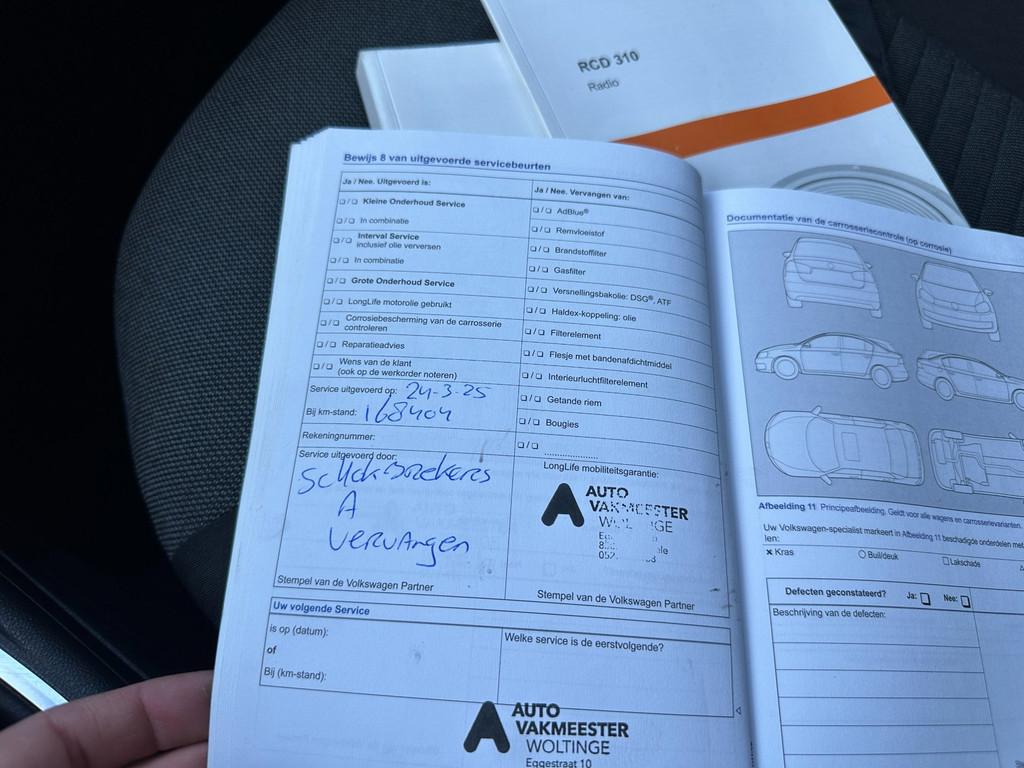 RCD 310
Radio
Bewijs 8 van uitgevoerde servicebeurten
Ja / Nee. Uitgevoerd is:
❑ / ❑ Kleine Onderhoud Service
❑ / ❑ In combinatie
❑ / ❑ Interval Service
inclusief olie verversen
❑ / ❑ In combinatie
❑ / ❑ Grote Onderhoud Service
❑ / ❑ LongLife motorolie gebruikt
❑ / ❑ Corrosiebescherming van de carrosserie
controleren
❑ / ❑ Reparatieadvies
❑ / ❑ Wens van de klant
(ook op de werkorder noteren)
Service uitgevoerd op: 24-3-25
Bij km-stand: 168404
Rekeningnummer:
Service uitgevoerd door:
A
vervangen
Stempel van de Volkswagen Partner
Ja / Nee. Vervangen van:
❑ / ❑ AdBlue®
❑ / ❑ Remvloeistof
❑ / ❑ Brandstoffilter
❑ / ❑ Gasfilter
❑ / ❑ Versnellingsbakolie: DSG®, ATF
❑ / ❑ Haldex-koppeling: olie
❑ / ❑ Filterelement
❑ / ❑ Flesje met bandenafdichtmiddel
❑ / ❑ Interieurluchtfilterelement
❑ / ❑ Getande riem
❑ / ❑ Bougies
❑ / ❑ ....................
LongLife mobiliteitsgarantie:
AUTO
VAKMEESTER
Stempel van de Volkswagen Partner
Uw volgende Service
is op (datum):
of
Bij (km-stand):
Welke service is de eerstvolgende?
AUTO
VAKMEESTER
WOLTINGE
Eggestraat 10
Documentatie van de carrosseriecontrole (op corrosie)
Afbeelding 11 Principeafbeelding. Geldt voor alle wagens en carrosserievarianten.
Uw Volkswagen-specialist markeert in Afbeelding 11 beschadigde onderdelen met
len:
× Kras ○ Buil/deuk □ Lakschade
Defecten geconstateerd? Ja: ❑ Nee: ❑
Beschrijving van de defecten: